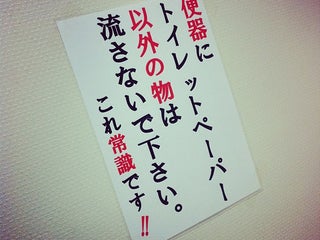 便器に
トイレットペーパー
以外の物は
流さないで下さい。
これ常識です!!